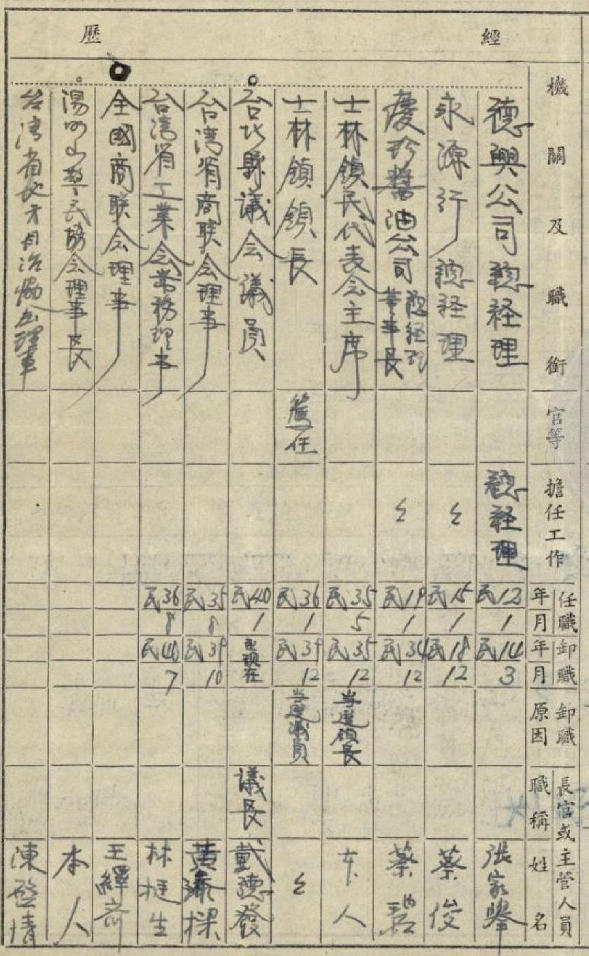 經歷
機關及職銜
官等
擔任工作
任職年月
卸職年月
卸職原因
長官或主管人員
職稱
姓名
德興公司總經理
總經理
民12
1
民14
3
張家擧
永源行總經理
〻
民15
1
民18
12
蔡俊
慶珍醬油公司總經理董事長
〻
民19
1
民34
12
士林鎮民代表会主席
民35
5
民35
12
当選鎮長
本人
士林鎮鎮長
薦任
民36
1
民39
12
当選議員
〻
台北縣議会議員
民40
1
現在
議長
戴德發
台湾省商联会理事
民35
8
民39
10
台湾省工業会常務理事
民36
8
民40
7
林挺生
全國商联会理事
王繹齋
陽明山軍民協会理事長
本人
台湾省地方自治協会理事
陳啓清